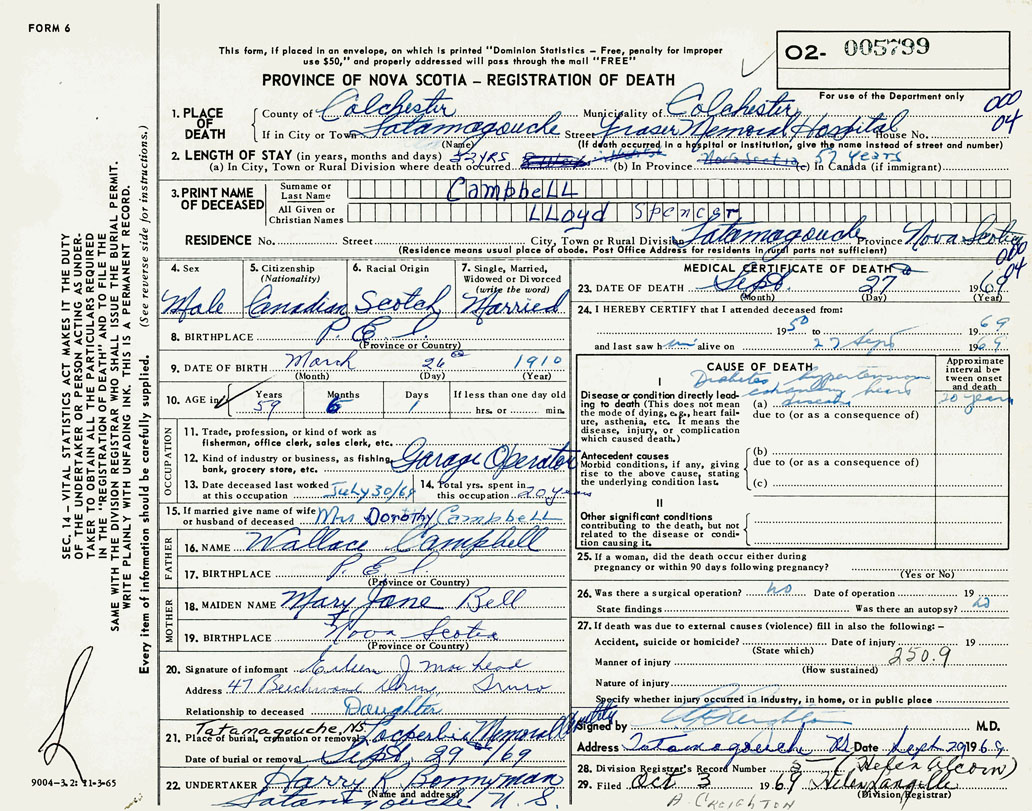 FORM 6
This form, if placed in an envelope, on which is printed "Dominion Statistics – Free, penalty for improper
use $50," and properly addressed will pass through the mail "FREE"
02- 005799
For use of the Department only
PROVINCE OF NOVA SCOTIA – REGISTRATION OF DEATH
000
04
1. PLACE OF DEATH
County of Colchester Municipality of Colchester
If in City or Town Tatamagouche Street Fraser Memorial Hospital House No.
(Name) (If death occurred in a hospital or institution, give the name instead of street and number)
2. LENGTH OF STAY (in years, months and days) 52 YRS Nova Scotia 57 years
(a) In City, Town or Rural Division where death occurred (b) In Province (c) In Canada (if immigrant)
3. PRINT NAME OF DECEASED
Surname or Last Name CampbeLL
All Given or Christian Names LLoyd Spencer
RESIDENCE No. Street City, Town or Rural Division Tatamagouche Province Nova Scotia
(Residence means usual place of abode. Post Office Address for residents in rural parts not sufficient)
000
04
4. Sex Male
5. Citizenship (Nationality) Canadian
6. Racial Origin Scotch
7. Single, Married, Widowed or Divorced (write the word) Married
8. BIRTHPLACE P.E.I.
(Province or Country)
9. DATE OF BIRTH March 26 1910
(Month) (Day) (Year)
10. AGE in Years 59 Months 6 Days 1 If less than one day old
hrs. or min.
OCCUPATION
11. Trade, profession, or kind of work as
fisherman, office clerk, sales clerk, etc.
12. Kind of industry or business, as fishing, Garage Operator
bank, grocery store, etc.
13. Date deceased last worked at this occupation July 30/69
14. Total yrs. spent in this occupation 20 years
15. If married give name of wife or husband of deceased Mrs Dorothy Campbell
FATHER
16. NAME Wallace Campbell
17. BIRTHPLACE P.E.I.
(Province or Country)
MOTHER
18. MAIDEN NAME Mary Jane Bell
19. BIRTHPLACE Nova Scotia
(Province or Country)
20. Signature of informant Eileen J
Address 47 Beechwood Truro
Relationship to deceased Daughter
21. Place of burial, cremation or removal Tatamagouche, NS Memorial
Date of burial or removal Sept. 29 /69
22. UNDERTAKER Harry R Bonnyman
(Name and address)
Tatamagouche N.S.
MEDICAL CERTIFICATE OF DEATH
23. DATE OF DEATH Sept. 27 1969
(Month) (Day) (Year)
24. I HEREBY CERTIFY that I attended deceased from:
1950 to 1969
and last saw him alive on 27 Sept 1969
CAUSE OF DEATH
Approximate interval between onset and death
I
Disease or condition directly leading to death (This does not mean the mode of dying, e.g., heart failure, asthenia, etc. It means the disease, injury, or complication which caused death.)
Diabetes hypertension
(a) heart disease 20 years
due to (or as a consequence of)
Antecedent causes
Morbid conditions, if any, giving rise to the above cause, stating the underlying condition last.
(b)
due to (or as a consequence of)
(c)
II
Other significant conditions
contributing to the death, but not related to the disease or condition causing it.
25. If a woman, did the death occur either during
pregnancy or within 90 days following pregnancy?
(Yes or No)
26. Was there a surgical operation? no Date of operation 19
State findings Was there an autopsy? no
27. If death was due to external causes (violence) fill in also the following:–
Accident, suicide or homicide? Date of injury 19
(State which)
Manner of injury 250.9
(How sustained)
Nature of injury
Specify whether injury occurred in Industry, in home, or in public place
Signed by M.D.
Address Tatamagouche NS Date Sept 29 1969
28. Division Registrar's Record Number 5 (Helen Alcorn)
29. Filed Oct 3 1969 Helen Langille
(Division Registrar)
A CREIGHTON
SEC. 14 – VITAL STATISTICS ACT MAKES IT THE DUTY
OF THE UNDERTAKER OR PERSON ACTING AS UNDER-
TAKER TO OBTAIN ALL THE PARTICULARS REQUIRED
IN THE "REGISTRATION OF DEATH" AND TO FILE THE
SAME WITH THE DIVISION REGISTRAR WHO SHALL ISSUE THE BURIAL PERMIT.
WRITE PLAINLY WITH UNFADING INK. THIS IS A PERMANENT RECORD.
Every item of information should be carefully supplied. (See reverse side for instructions.)
9004-3.2: 11-3-65